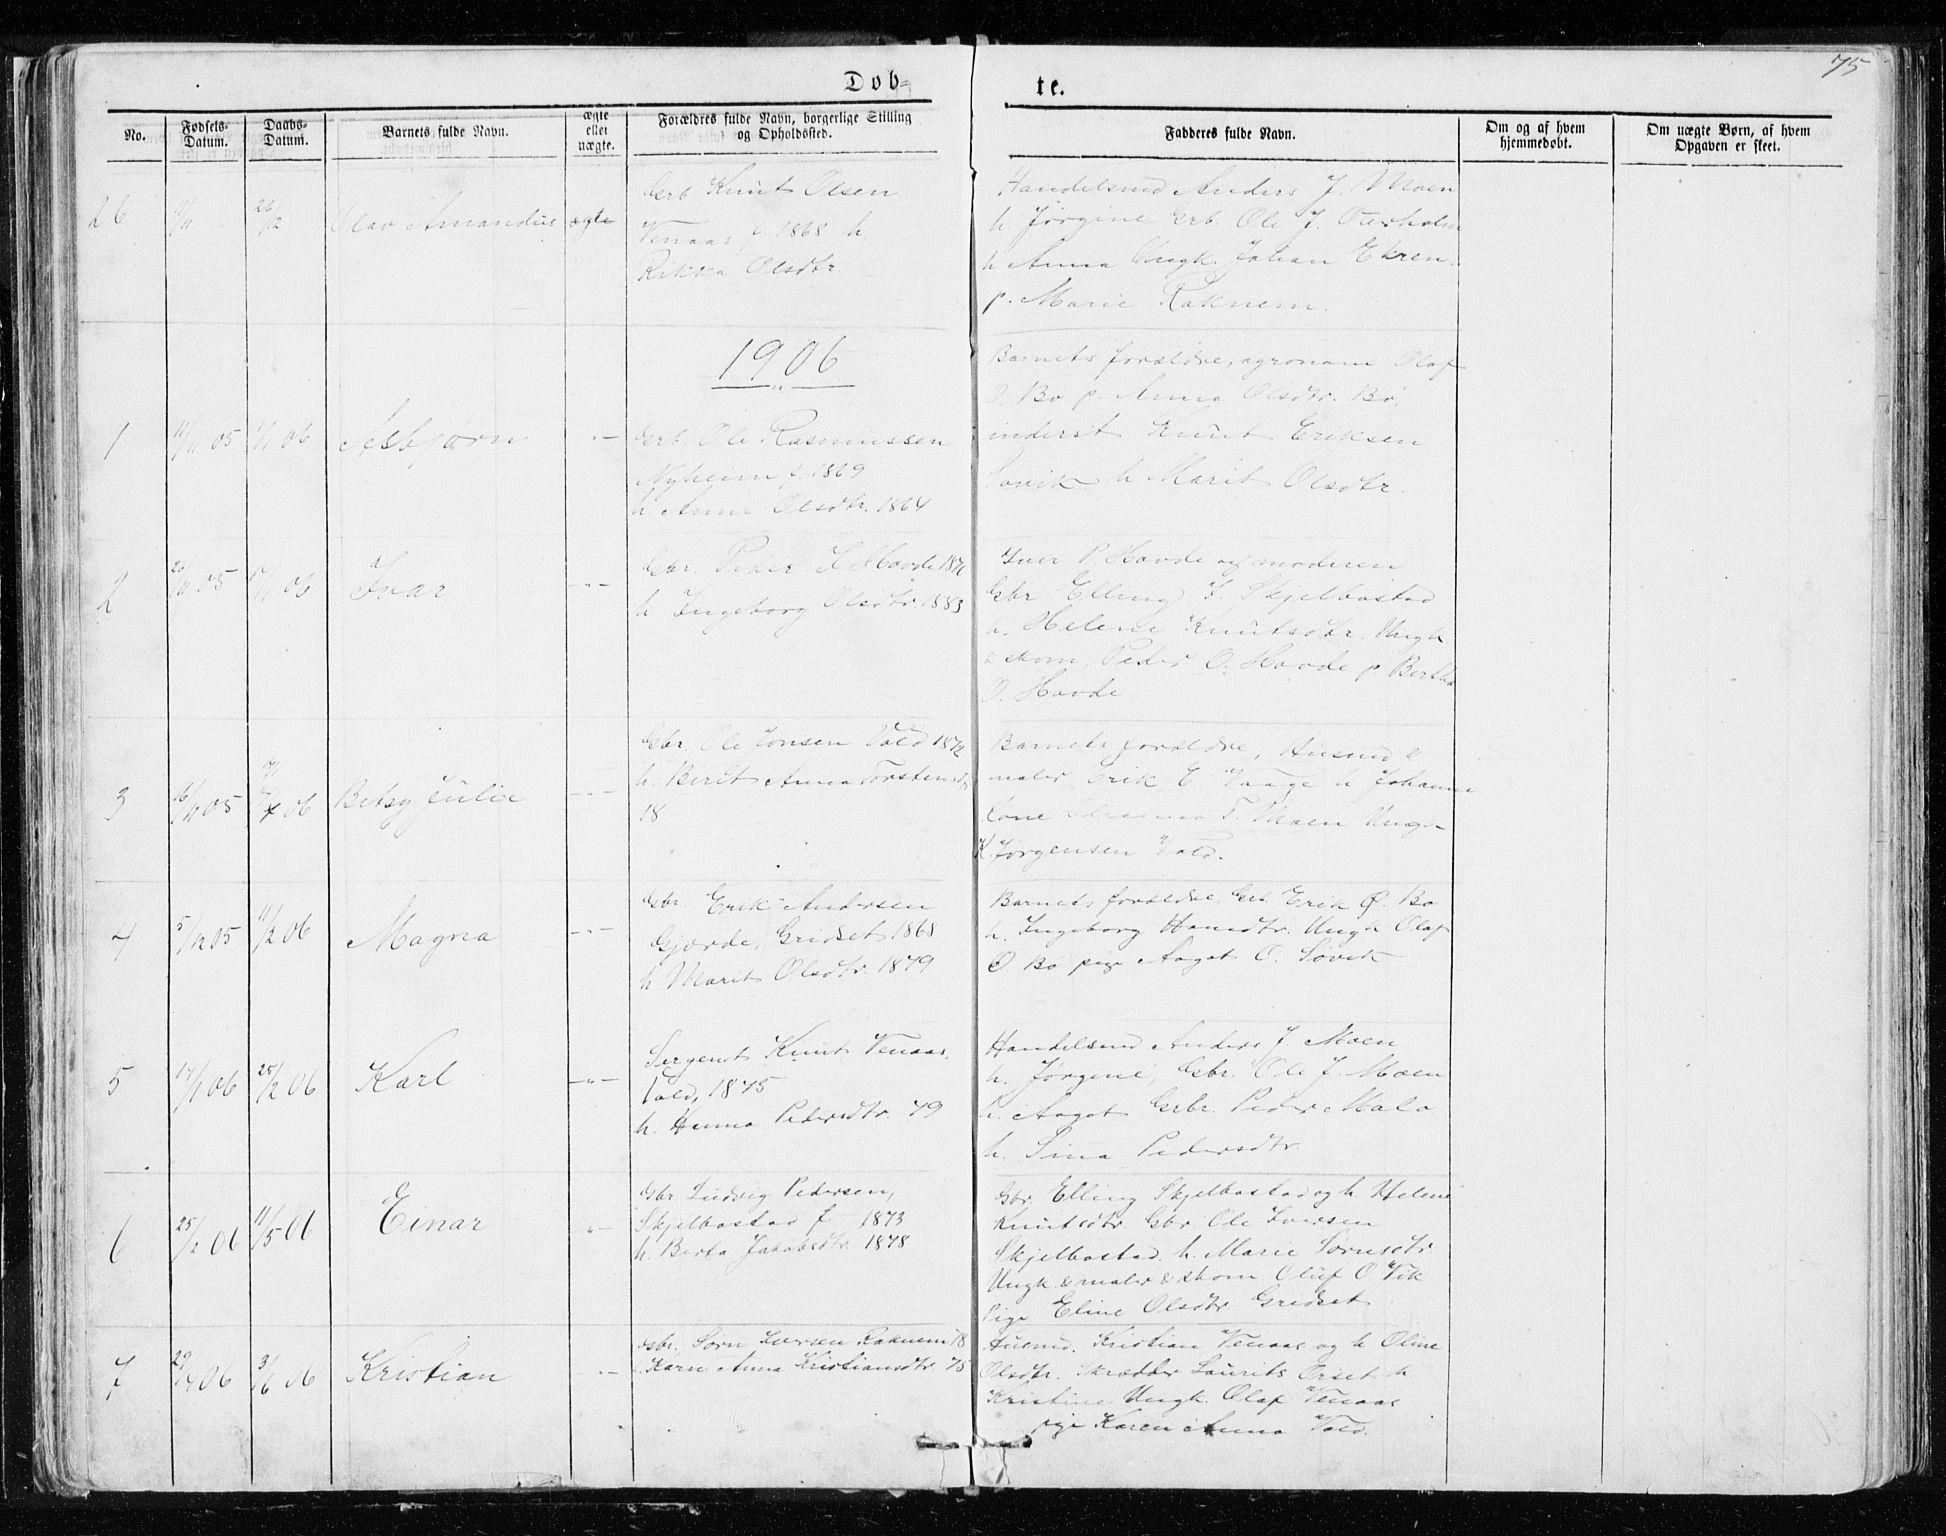 75
Døb=
te.
No.
Fødsels-Datum.
Daabs-Datum.
Barnets fulde Navn.
ægte eller uægte.
Forældres fulde Navn, borgerlige Stilling og Opholdssted.
Fadderes fulde Navn.
Om og af hvem hjemmedøbt.
Om uægte Børn, af hvem Opgaven er skeet.
26
26/12
Olav Amandus
ægte
Grb Knut Olsen
Venaas f. 1868 h
Rikka Olsdtr.
Handelsmd Anders J. Moen
h. Jørgine Grb. Ole J. Oterholm
h Anna Ungk. Johan Ekren
p. Marie Raknem.
1906
1
05
1/1 06
Asbjørn
-"-
Grb. Ole Rasmussen
Nyheim f. 1869
h. Anne Olsdtr. 1864
Barnets forældre, agronom Olaf
O. Bø p. Anna Olsdtr. Bø,
inderst Knut Eriksen
Søvik h Marit Olsdtr.
2
05
06
Ivar
-"-
Gbr. Peder I Hovde
h Ingeborg Olsdtr. 1883
Iver P. Hovde og moderen
Gbr Elling I. Skjelbostad
h. Helene Knutsdtr. Ungk
& skom. Peder O. Hovde p Bertha
O. Hovde
3
05
06
Betsy Julie
-"-
Gbr. Ole Jonsen Vold 1872
h. Berit Anna Torstensdtr
18
Barnets forældre, Husmd &
maler Erik E Vaage h Johanne
Kone T. Moen Ungk
K. Jørgensen Vold.
4
5/12 05
11/2 06
Magna
-"-
Gbr. Erik Andersen
Gjerde, Gridset 1868
h Marit Olsdtr. 1879
Barnets forældre, Grb Erik O. Bø
h. Ingeborg Hansdtr. Ungk Olaf
O. Bø pige Aagot O. Søvik
5
17/1 06
25/2 06
Karl
-"-
Sergent Knut Venaas,
Vold, 1875
h. Hanna Pedersdtr. 79
Handelsmd Anders J. Moen
h. Jørgine, Gbr. Ole J. Moen
h. Aagot Grbr. Peder Malo
h. Sina Pedersdtr.
6
25/2 06
11/5 06
Einar
"-
Gbr Ludvig Pedersen,
Skjelbostad f 1873
h. Berta Jakobsdtr. 1878
Gbr. Elling Skjelbostad og h Helene
Knutsdtr. Gbr. Ole Iversen
Skjelbostad. h. Marie Sørnsdtr
Ungk & maler & skom. Oluf O. Vik
Pige Eline Olsdtr Gridset
7
29/4 06
3/6 06
Kristian
-"-
Gbr. Sørn Iversen Raknem 18
Karn Anna Kristiansdtr. 75
Husmd. Kristian Venaas og h Oline
Olsdtr. Skrædder Laurits Orset h.
Kristine Ungk. Olaf Venaas
pige Karen Anna Vold.